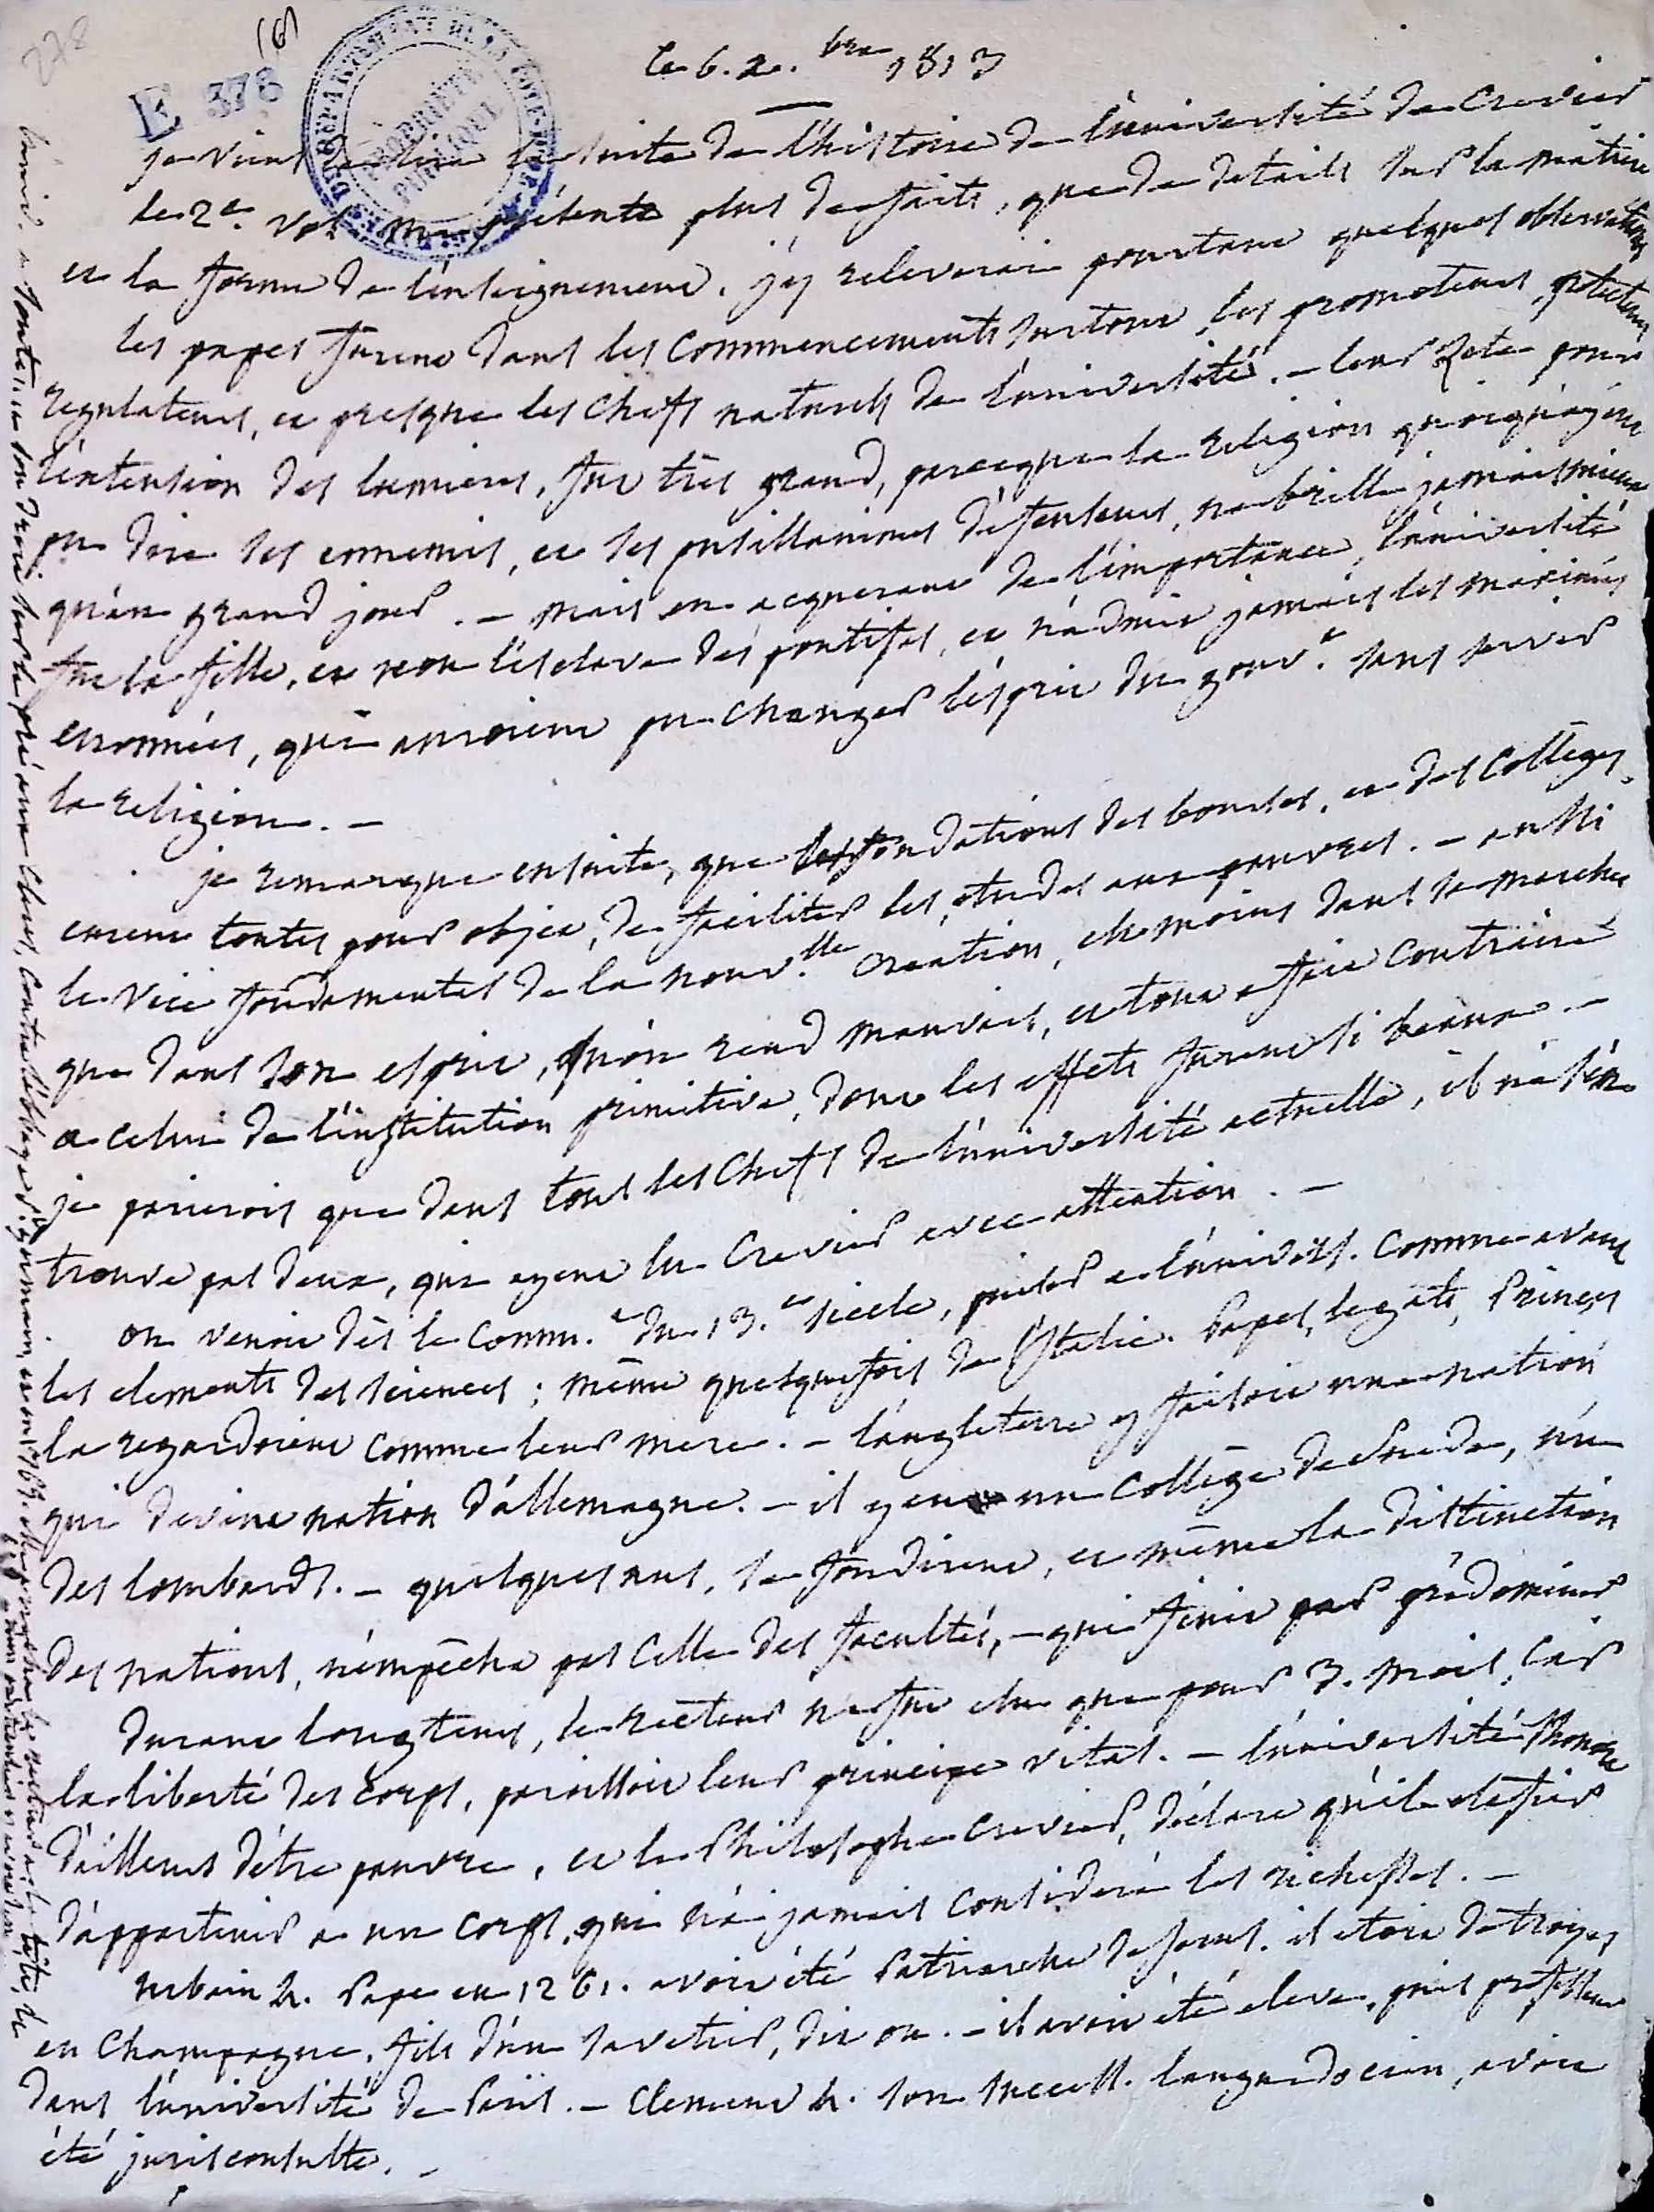 278
(6)
E 378
DEPARTEMENT DE LA COTE-D'OR
PROPRIÉTÉ PUBLIQUE
le 6. X.bre 1813
je viens de lire la suite de l'histoire de l'université de Crevier
le 2e. vol. me présente plus de faits, que de details sur la matiere
et la forme de l'enseignement. j'y releverai pourtant quelques observations
les papes furent dans les commencements surtout, les promoteurs, protecteurs
regulateurs, et presque les chefs naturels de l'université. – leur zele pour
l'extension des lumieres, fut très grand, parceque la religion quoiqu'ayent
pu dire ses ennemis, et ses pusillanimes défenseurs, ne brille jamais mieux
qu'au grand jour. – mais en acquerant de l'importance, l'université
fut la fille, et non l'esclave des pontifes, et n'admit jamais les maximes
erronnées, qui auroient pu changer l'esprit du gouv.t sans servir
la religion. –
je remarque ensuite, que les fondations des bourses, et des colleges,
eurent toutes pour objet, de faciliter les études aux pauvres. – aussi
le vice fondamental de la nouv.lle création, est moins dans sa marche
que dans son esprit, qu'on rend mauvais, et tout a fait contraire
a celui de l'institution primitive, dont les effets furent si beaux. –
je parierois que dans tous les chefs de l'université actuelle, il n'a s'en
trouve pas deux, qui ayent lu Crevier avec attention. –
on venoit dès le comm.t du 13.e siecle, puiser a l'univers. comme avant
les elements des sciences ; même quelquefois de l'Italie. Papes, legats, Princes
la regardoient comme leur mere. – l'angleterre y faisoit une nation
qui devint nation d'allemagne. – il y eut un college de Suede, un
des lombards. – quelques uns, se fondirent, et même la distinction
des nations, n'empêcha pas celle des facultés, – qui finit par prédominer
durant longtems, le recteur ne fut elu que pour 3. mois, car
la liberté des corps, paroissoit leur principe vital. – l'université s'honore
d'ailleurs d'être pauvre, et le Philosophe Crevier, déclare qu'il est fier
d'appartenir a un corps, qui n'a jamais considéré les richesses. –
urbain 4. Pape en 1261. avoit été Patriarche de Jerus. il etoit de troyes
en Champagne, fils d'un savetier, dit on. – il avoit été eleve, puis professeur
dans l'université de Paris. – Clement 4. son success. languedocien, avoit
été jurisconsulte. –